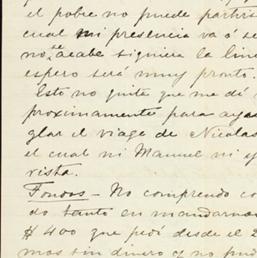 el pobre no puede partir
cual mi presencia va á se
no se acabe siquiera la line
espero será muy pronto.
Esto no quite que me dé
proximamente para aya
glar el viage de Nicolas
el cual ni Manuel ni y
rista.
Fondos — No comprendo co
do tanto en mandarnos
$400 que pedí desde el 2
mos sin dinero y no pod